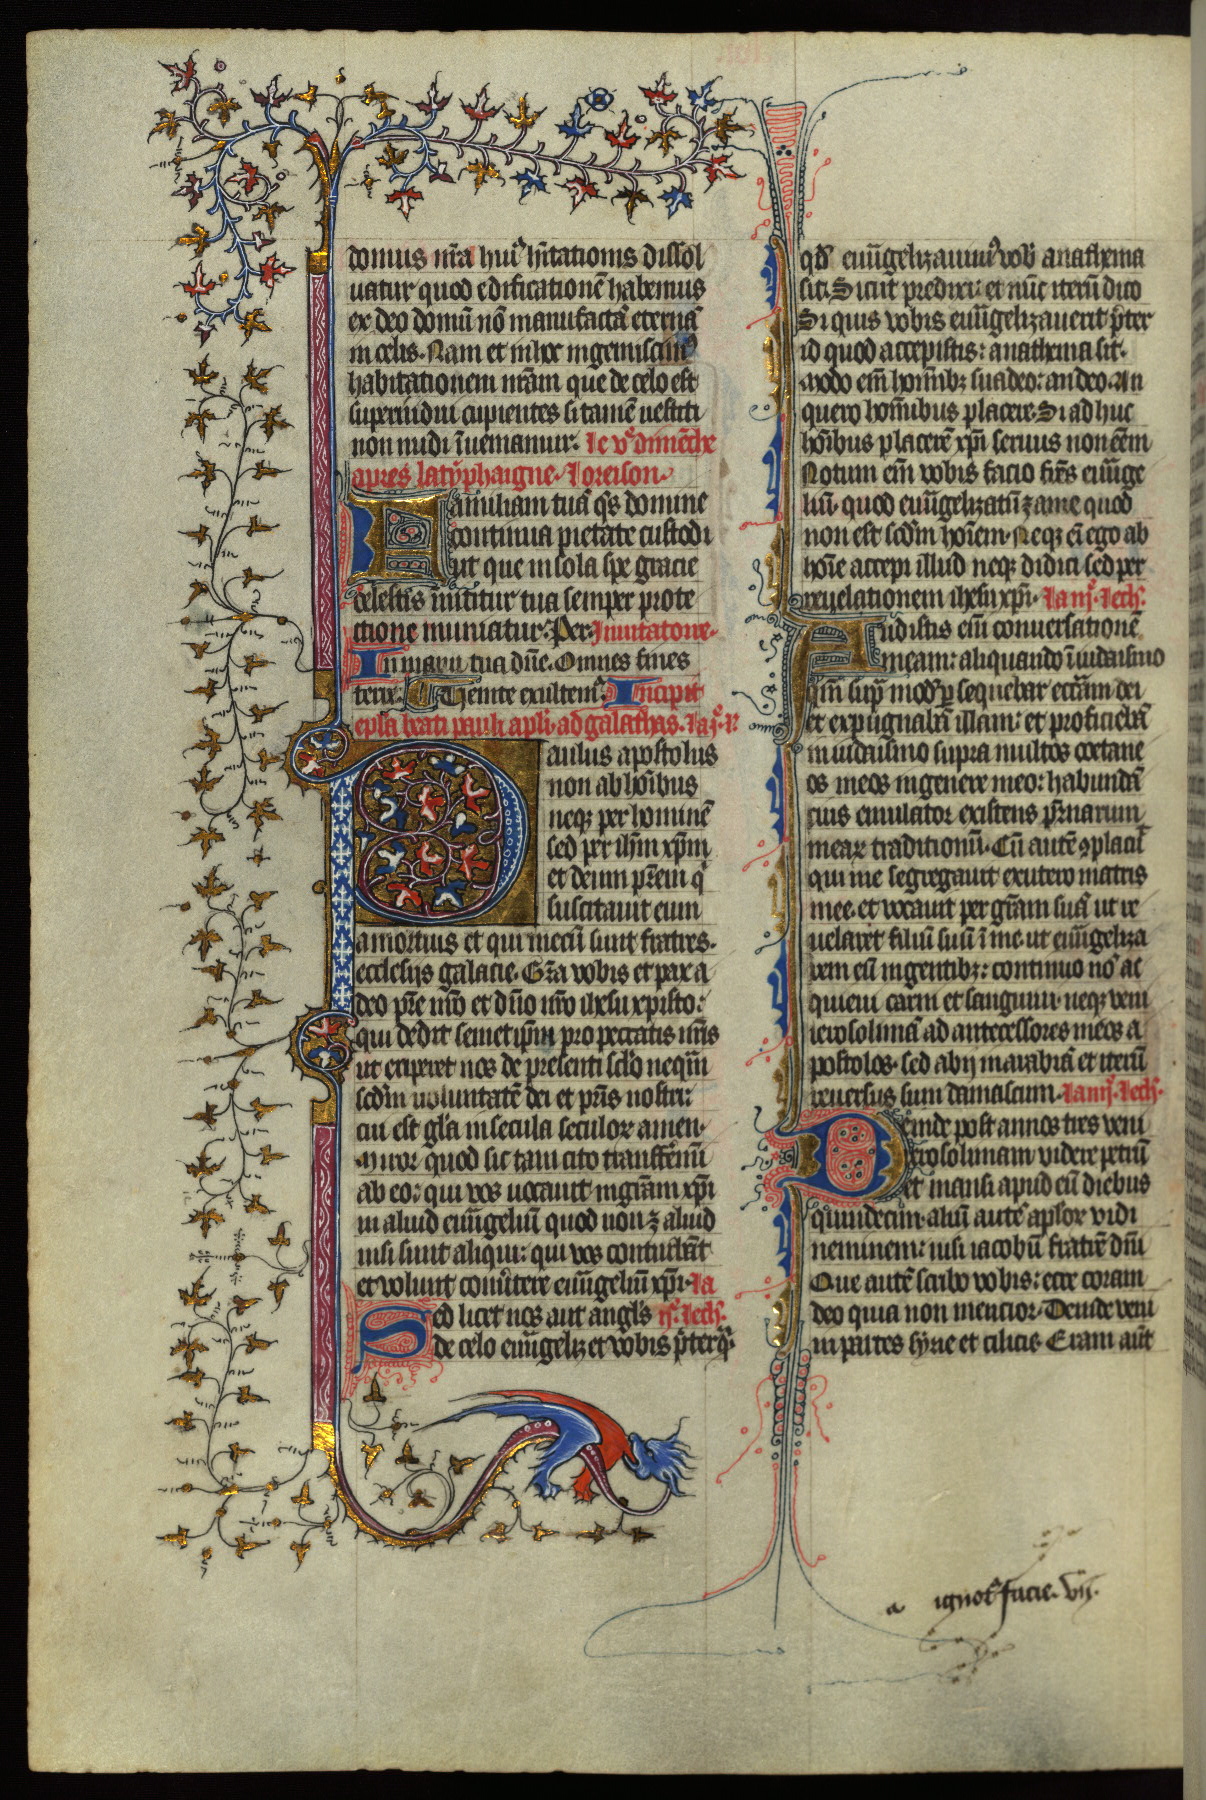 domus nr̄a huiꝰ hītationis dissol
uatur quod edificationē habemus
ex deo domū nō manufactā eternā
in celis. Nam et in hoc ingemiscimꝰ
habitationem nrām que de celo est
superindui cupientes si tamē uestiti
non nudi īueniamur. Le v͛ dimēche
apres la typhaigne. Loreison.
Familiam tuā q̄s domine
continua pietate custodi
ut que in sola spe gracie
celestis īnititur tua semper prote
ctione muniatur. Per. Inuitatoire.
In manu tua dn̄e. Omnes fines
terre. Uenite exultemꝰ. Incipit
ep̄la beati pauli apl̄i ad galathas.
Paulus apostolus
non ab hōibus
neqꝫ per hominē
sed per ih̄m xp̄m
et deum pr̄em qͥ
suscitauit eum
a mortuis et qui mecū sunt fratres.
ecclesijs galacie. Gr̄a vobis et pax a
deo pr̄e nr̄o et dn̄o nr̄o ih̄esu xp̄isto:
qui dedit semetip̄m pro peccatis nr̄is
ut eriperet nos de presenti sc̄lo neq̄m
scd̄m uoluntatē dei et pr̄is nostri:
cui est gl̄a in secula seculoꝝ amen.
Miror quod sic tam cito transferimī
ab eo: qui vos uocauit in gr̄am xp̄i
in aliud euūgeliū quod non ꝫ aliud
nisi sunt aliqui: qui vos conturbāt
et volunt conu̾tere euūgeliū xp̄i. La
Sed licet nos aut angl̄s ij͛. lecħ.
de celo euūgelizet vobis p̄terq̄
qd̄ euūgelizauimꝰ vob̄ anathema
sit. Sicut predixi: et nūc iterū dico
Si quis vobis euūgelizauerit p̄ter
id quod accepistis: anathema sit.
Modo em̄ homībꝫ suadeo: an deo. An
quero hom̄ibus placere. Si adhuc
hōibus placerē xp̄i seruus non eēm
Notum em̄ vobis facio fr̄s euūge
liū. quod euūgelizatū ꝫ a me quod
non est scd̄m hoīem. Neqꝫ em̄ ego ab
hoīe accepi illud neqꝫ didici sed per
reuelationem ih̄esu xp̄i. La iij͛. lecħ.
Audistis em̄ conuersationē
meam: aliquando ī iudaismo
qm̄ sup̄ modū ꝑsequebar eccl̄am dei
et expugnabā illam: et proficiebā
in iudaismo supra multos coetane
os meos in genere meo: habundā
cius emulator existens pr̄narum
meaꝝ traditionū. Cū autē ꝯplacuit
qui me segregauit ex utero matris
mee. et vocauit per gr̄am suā ut re
uelaret filiū suū ī me. ut euūgeliza
rem eū in gentibꝫ: continuo nō ac
quieui carni et sanguini. neqꝫ veni
ierosolimā ad antecessores meos a
postolos. sed abij in arabiā et iterū
reuersus sum damascum. La iiij͛. lecħ.
Deinde post annos tres veni
ierosolimam videre petrū
et mansi apud eū diebus
quindecim. aliū autē apl̄oꝝ vidi
neminem: nisi iacobū fratrē dn̄i
Que autē scribo vobis: ecce coram
deo quia non mencior. Deinde veni
in partes syrie et cilicie. Eram aūt
a ignotꝰ facie. vij.